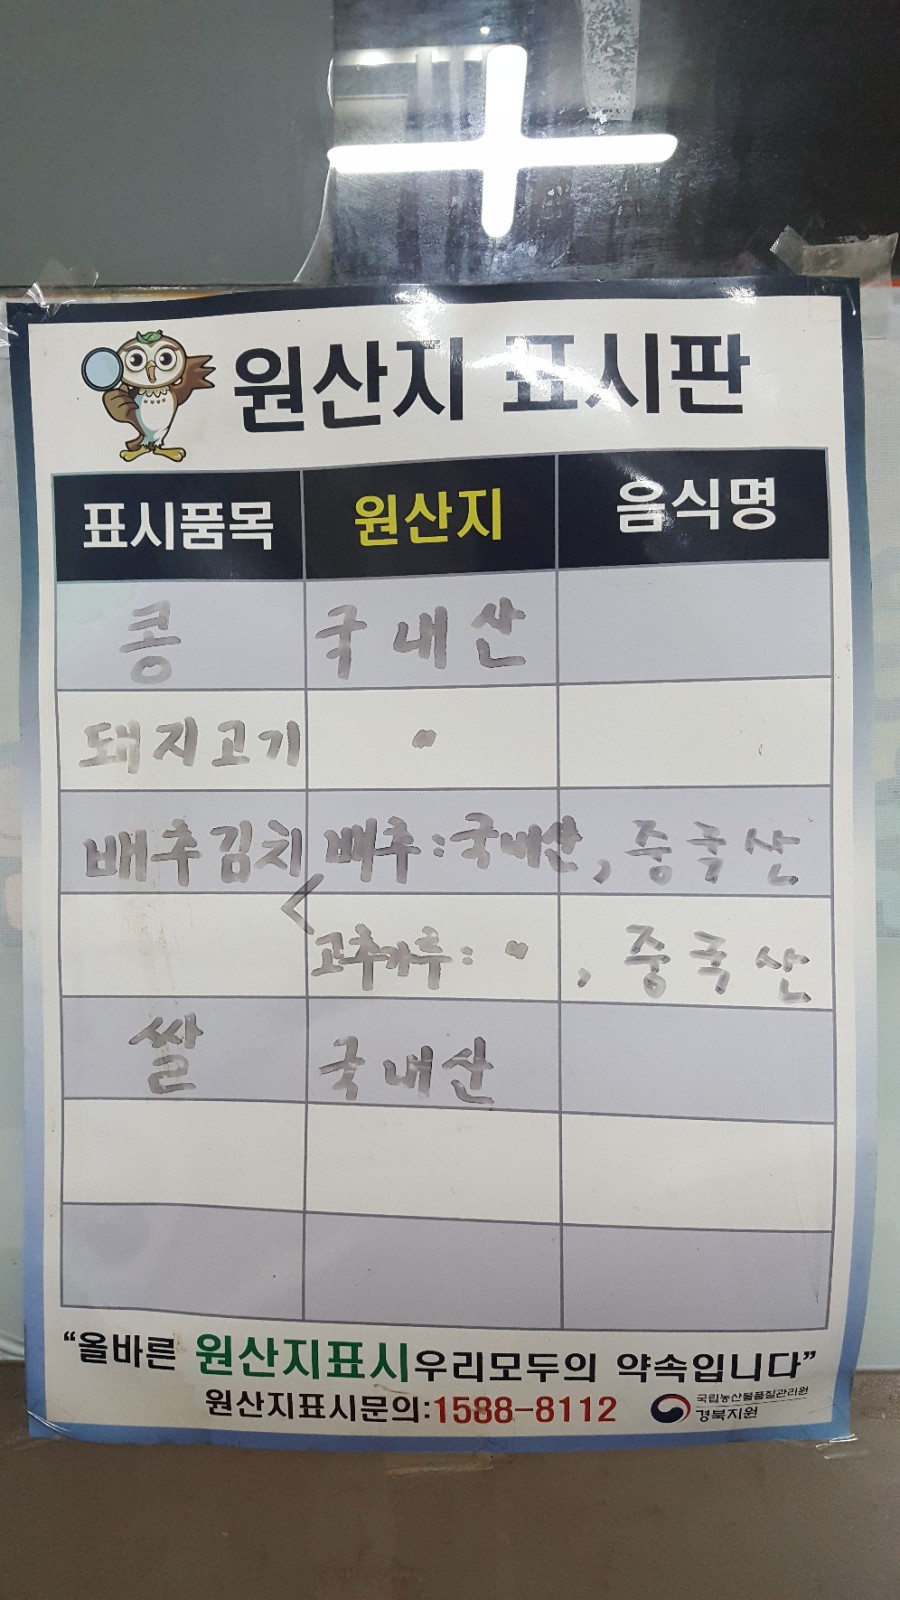 원산지 표시판
표시품목 원산지 음식명
콩 국내산
돼지고기 〃
배추김치 < 배추:국내산, 중국산
고추가루: 〃 , 중국산
쌀 국내산
“올바른 원산지표시 우리모두의 약속입니다”
원산지표시문의:1588-8112
국립농산물품질관리원
경북지원